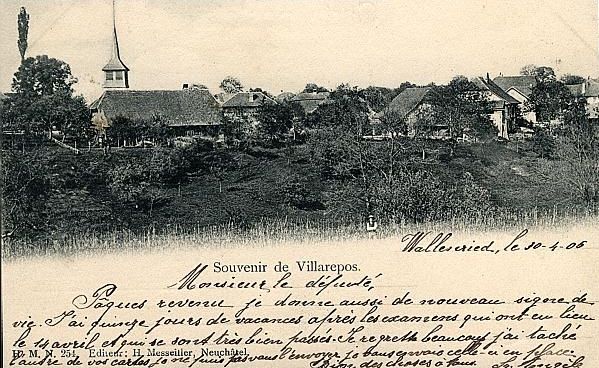 Wallesried, le 20-4-06
Souvenir de Villarepos.
Monsieur le député,
Pâques revenu je donne aussi de nouveau signe de
vie. J'ai quinze jours de vacances après les examens qui ont eu lieu
le 14 avril et qui se sont très bien passés. Je regrette beaucoup j'ai taché
l'autre de vos cartes je ne puis pas vous l'envoyer je vous envoie celle-ci en place.
H. M. N. 254. Editeur: H. Messeiller, Neuchâtel.
Bien des choses à tous.